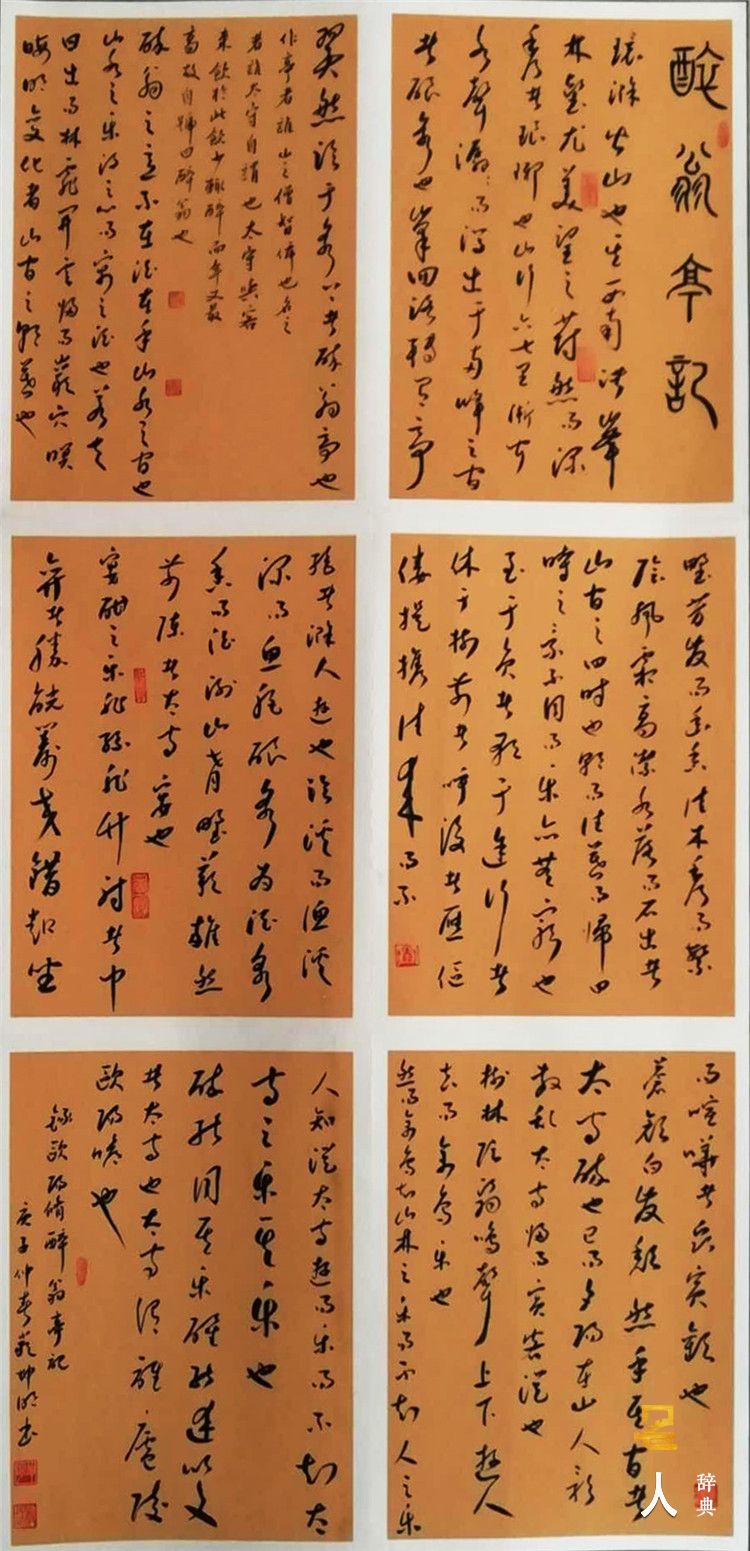 醉翁亭記
環滁皆山也其西南諸峰
林壑尤美望之蔚然而深
秀者琅琊也山行六七里漸聞
水聲潺潺而瀉出于兩峰之間
者釀泉也峰回路轉有亭
翼然臨于泉上者醉翁亭也
作亭者誰山之僧智僊也名之
者誰太守自謂也太守與客
來飲於此飲少輒醉而年又最
高故自號曰醉翁也
醉翁之意不在酒在乎山水之間也
山水之樂得之心而寓之酒也若夫
日出而林霏開雲歸而巖穴暝
晦明變化者山間之朝暮也
野芳發而幽香佳木秀而繁
陰風霜高潔水落而石出者
山間之四時也朝而往暮而歸四
時之景不同而樂亦無窮也
至于負者歌于途行者
休于樹前者呼後者應傴
僂提攜往來而不
絕者滁人遊也臨溪而漁溪
深而魚肥釀泉為酒泉
香而酒洌山肴野蔌雜然
前陳者太守宴也
宴酣之樂非絲非竹射者中
弈者勝觥籌交錯起坐
而喧嘩者眾賓歡也
蒼顏白髮頹然乎其間者
太守醉也已而夕陽在山人影
散亂太守歸而賓客從也
樹林陰翳鳴聲上下遊人
去而禽鳥樂也
然而禽鳥知山林之樂而不知人之樂
人知從太守遊而樂而不知太
守之樂其樂也
醉能同其樂醒能述以文
者太守也太守謂誰廬陵
歐陽脩也
錄歐陽脩醉翁亭記
庚子仲春坤明書
人
辞典